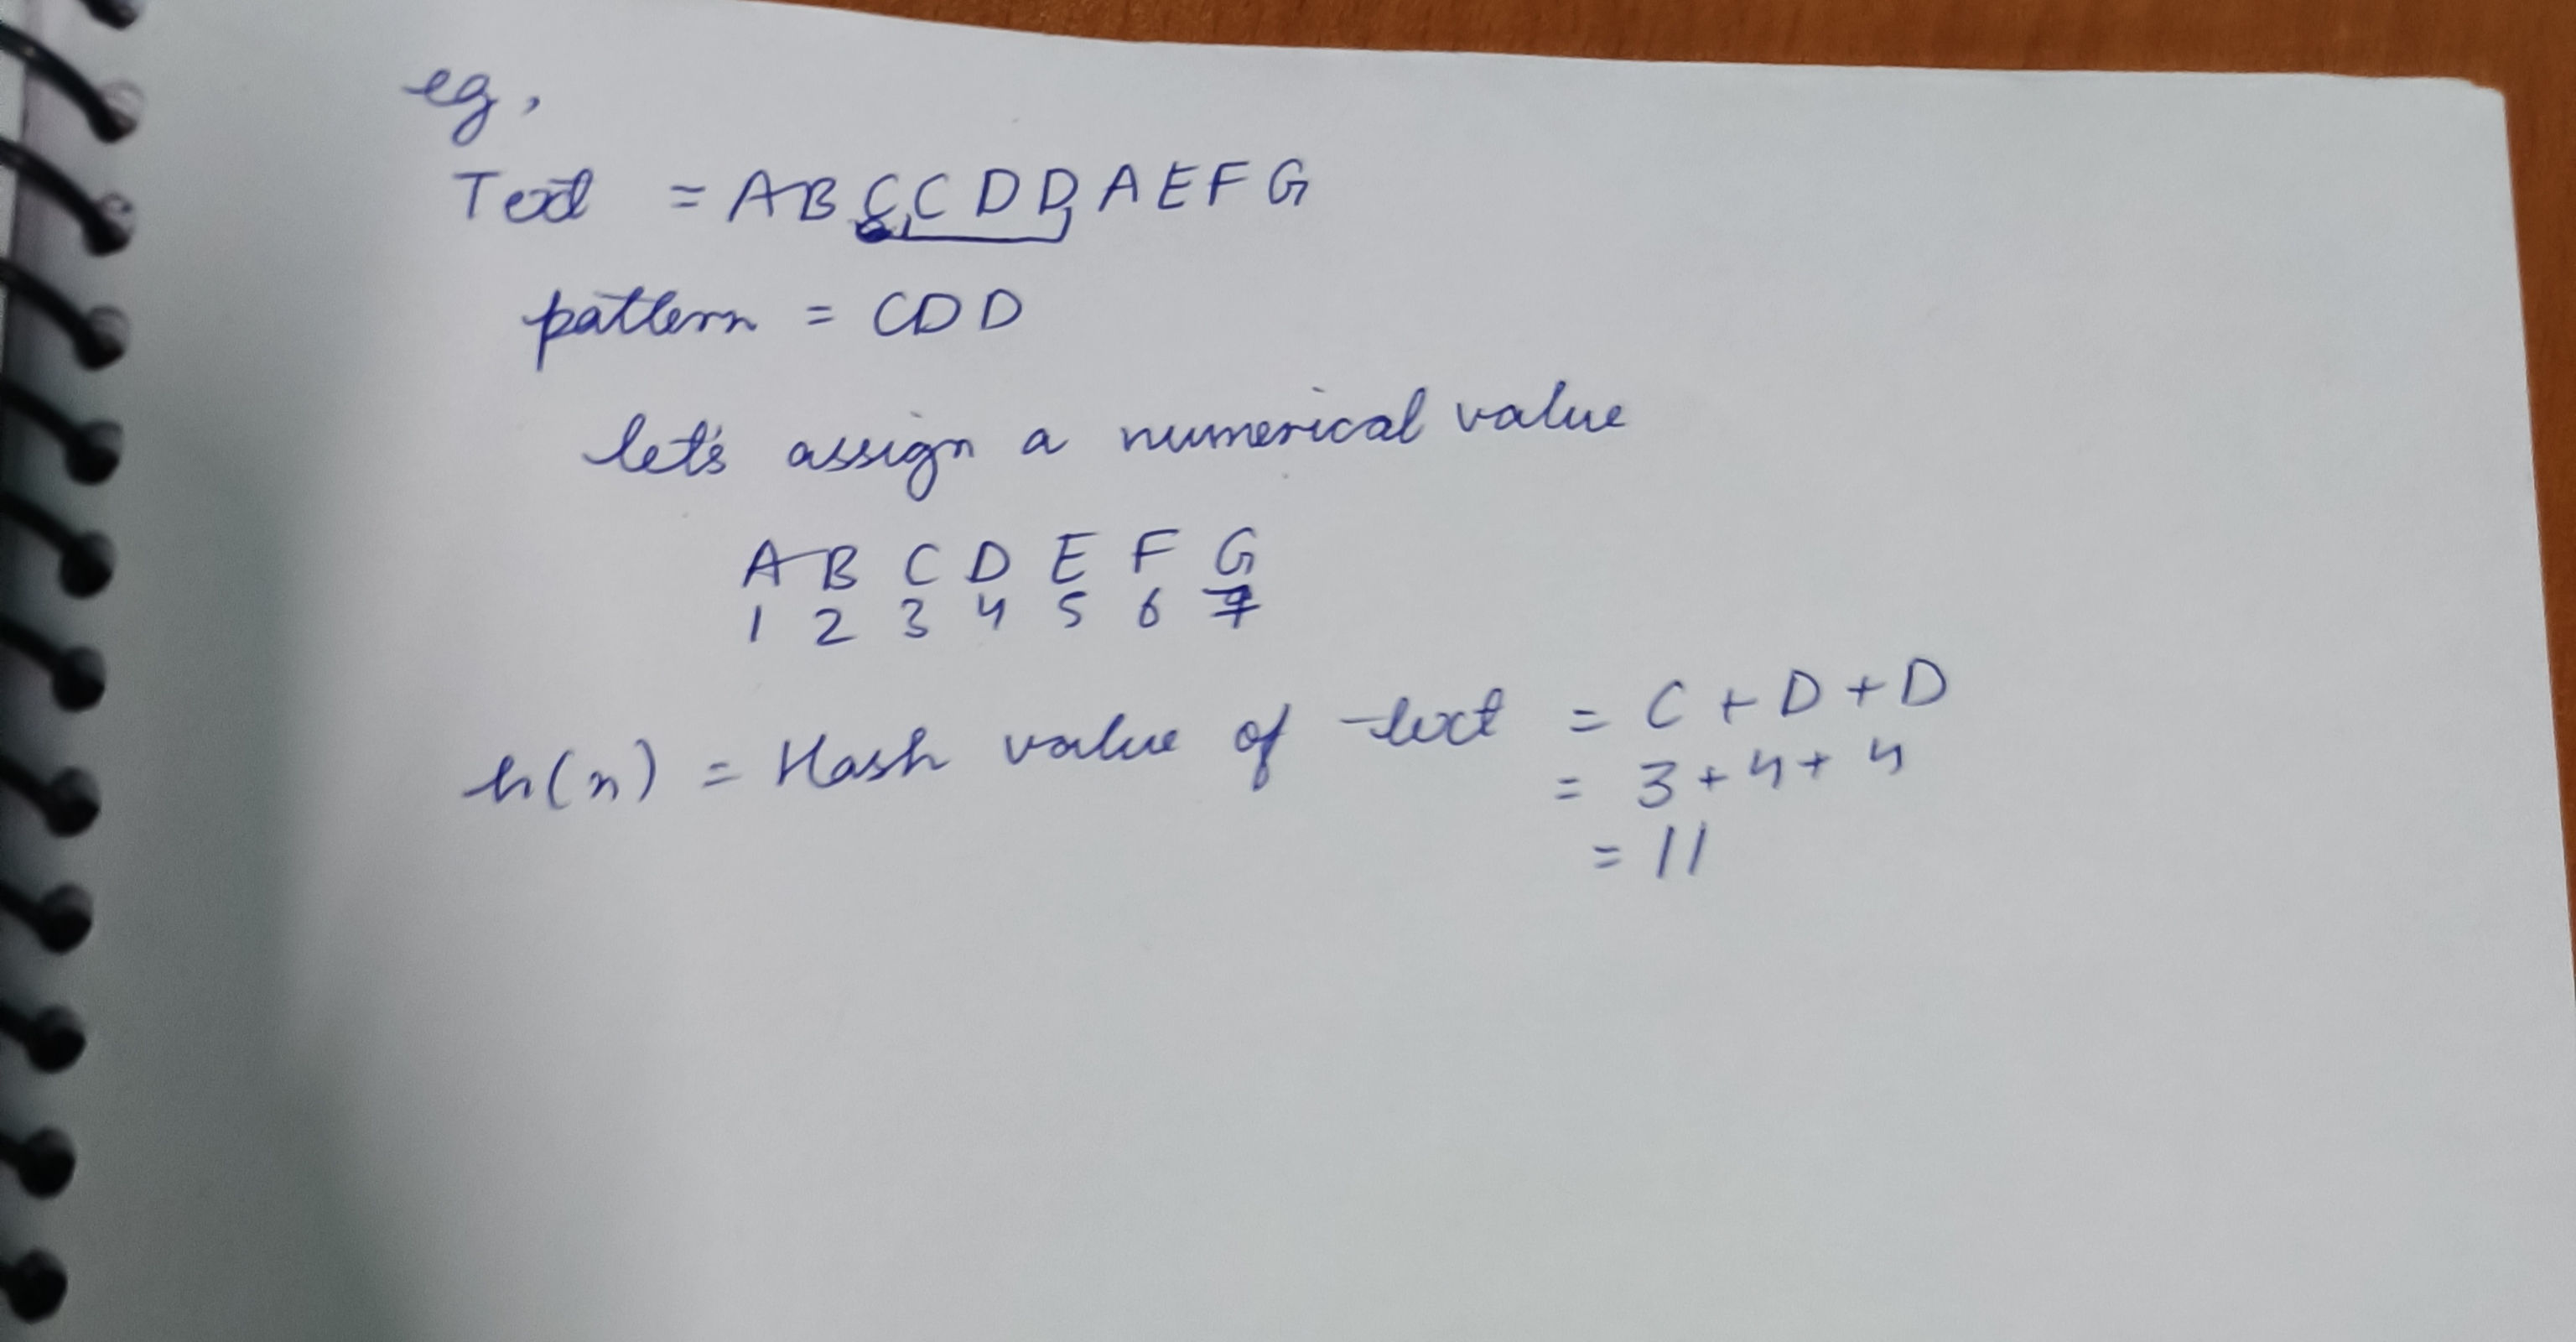 eg,
Text = A B C C D D A E F G
pattern = C D D
let's assign a numerical value
A B C D E F G
1 2 3 4 5 6 7
h(n) = Hash value of text = C + D + D
= 3 + 4 + 4
= 11